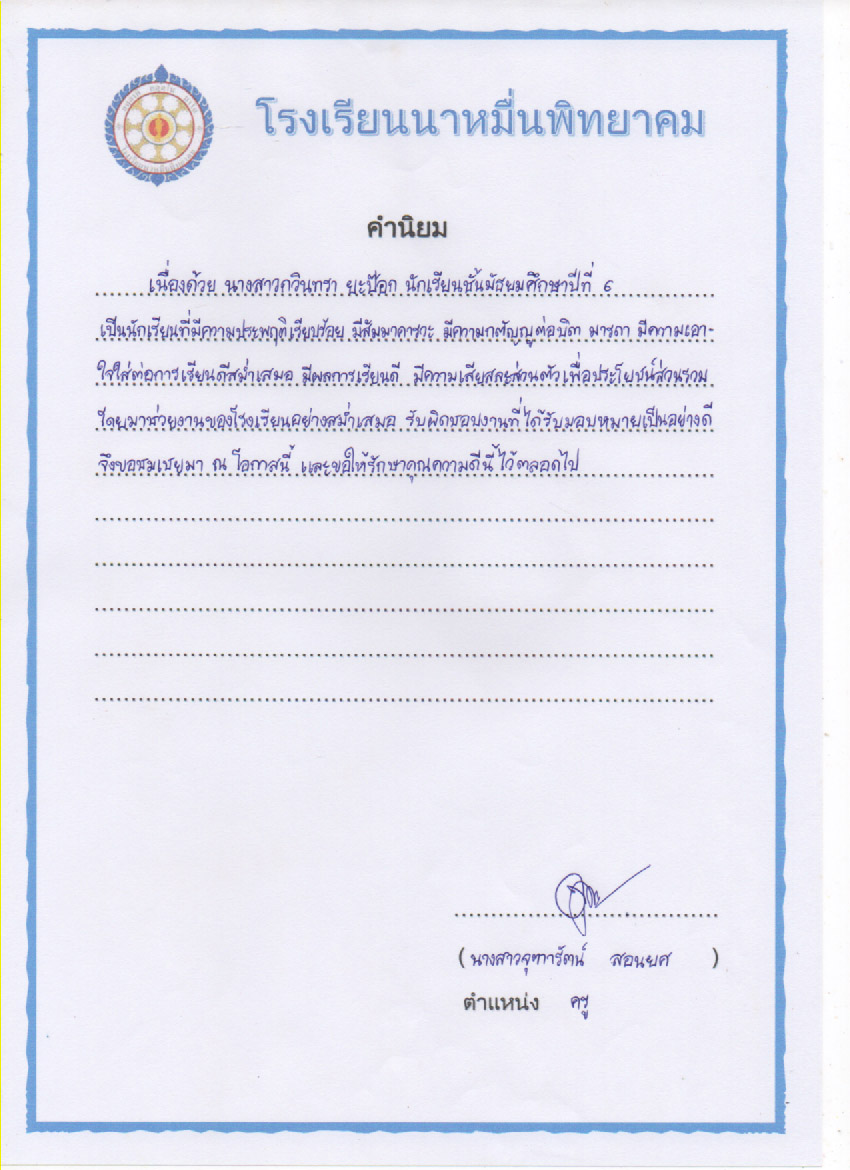 โรงเรียนนาหมื่นพิทยาคม
คำนิยม
เนื่องด้วย นางสาวกวินทรา ยะป๊อก นักเรียนชั้นมัธยมศึกษาปีที่ ๖
เป็นนักเรียนที่มีความประพฤติเรียบร้อย มีสัมมาคารวะ มีความกตัญญูต่อบิดา มารดา มีความเอา-
ใจใส่ต่อการเรียนดีสม่ำเสมอ มีผลการเรียนดี มีความเสียสละส่วนตัวเพื่อประโยชน์ส่วนรวม
โดยมาช่วยงานของโรงเรียนอย่างสม่ำเสมอ รับผิดชอบงานที่ได้รับมอบหมายเป็นอย่างดี
จึงขอชมเชยมา ณ โอกาสนี้ และขอให้รักษาคุณความดีนี้ไว้ตลอดไป
( นางสาวจุฑารัตน์ สอนยศ )
ตำแหน่ง ครู